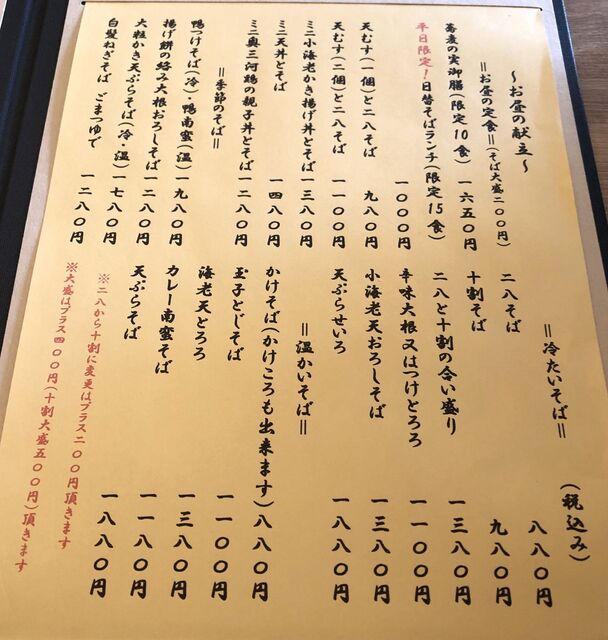 〜お昼の献立〜
=お昼の定食=(そば大盛二〇〇円)
蕎麦の実御膳(限定10食) 一六五〇円
平日限定!日替そばランチ(限定15食) 一〇〇〇円
天むす(一個)と二八そば 九八〇円
天むす(二個)と二八そば 一一〇〇円
ミニ小海老かき揚げ丼とそば 一三八〇円
ミニ天丼とそば 一四八〇円
ミニ奥三河鶏の親子丼とそば 一二八〇円
=季節のそば=
鴨つけそば(冷)・鴨南蛮(温) 一九八〇円
揚げ餅の絡み大根おろしそば 一二八〇円
大粒かき天ぷらそば(冷・温) 一七八〇円
白髪ねぎそば ごまつゆで 一二八〇円
=冷たいそば= (税込み)
二八そば 八八〇円
十割そば 九八〇円
二八と十割の合い盛り 一三八〇円
辛味大根又はつけとろろ 一一〇〇円
小海老天おろしそば 一三八〇円
天ぷらせいろ 一八八〇円
=温かいそば=
かけそば(かけころも出来ます) 八八〇円
玉子とじそば 一一〇〇円
海老天とろろ 一三八〇円
カレー南蛮そば 一一八〇円
天ぷらそば 一八八〇円
※二八から十割に変更はプラス二〇〇円頂きます
※大盛はプラス四〇〇円(十割大盛五〇〇円)頂きます